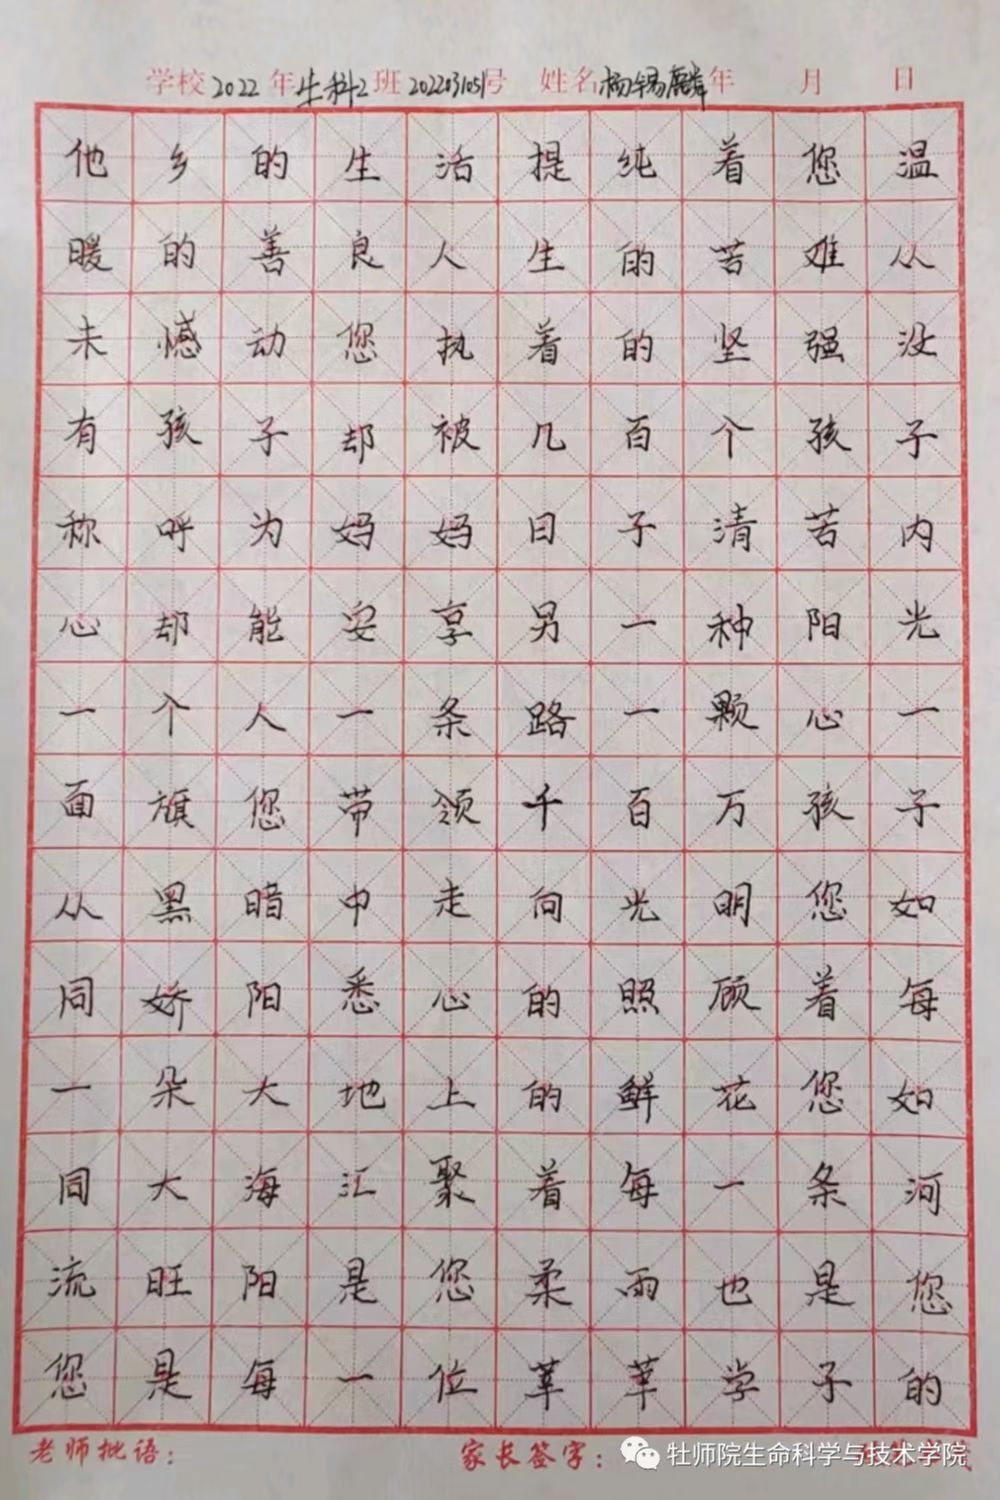 学校2022年生科2班2022031051号 姓名杨锡麟年 月 日
他乡的生活提纯着您温
暖的善良人生的苦难从
未憾动您执着的坚强没
有孩子却被几百个孩子
称呼为妈妈日子清苦内
心却能安享另一种阳光
一个人一条路一颗心一
面旗您带领千百万孩子
从黑暗中走向光明您如
同娇阳悉心的照顾着每
一朵大地上的鲜花您如
同大海汇聚着每一条河
流旺阳是您柔雨也是您
您是每一位莘莘学子的
老师批语： 家长签字：
牡师院生命科学与技术学院